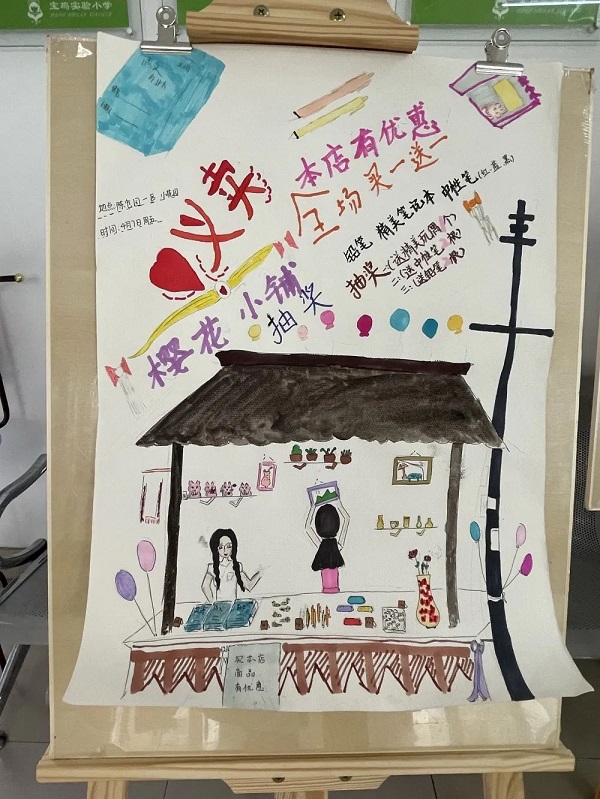 宝鸡实验小学
本店有优惠
全场买一送一
义卖
铅笔 精美笔记本 中性笔(红.蓝.黑)
时间:4月7日周五
抽奖:一(送精美玩偶1个)
二:(送中性笔2根)
三:(送铅笔2根)
樱花小铺
抽奖
买本店
商品
有优惠